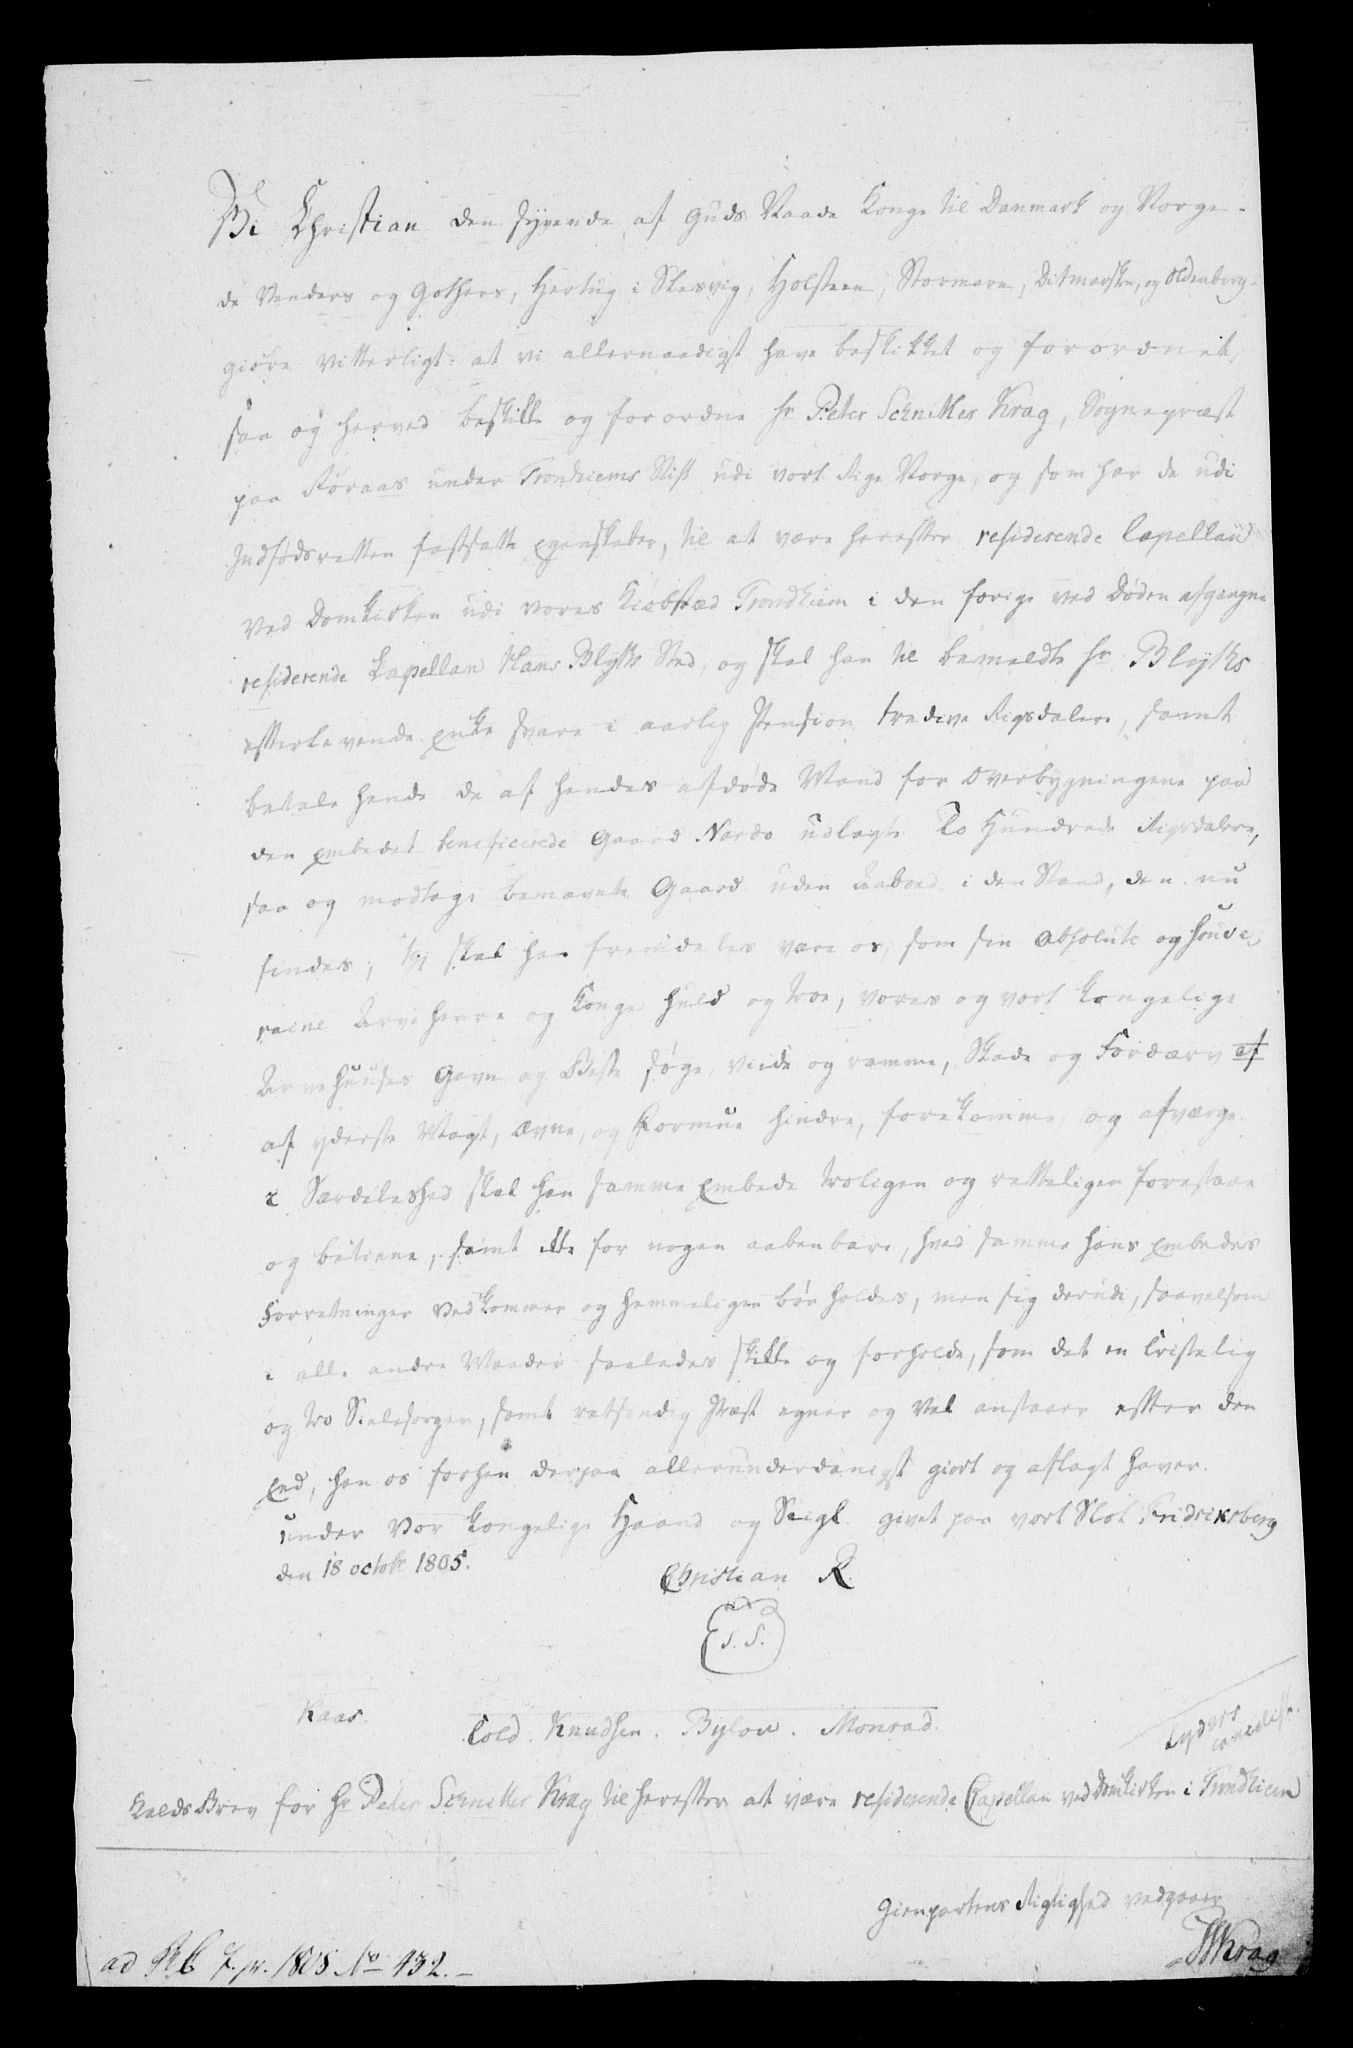 Vi Christian den syvende af Guds Naade Konge til Danmark og Norge.
de Venders og Gothers, Hertug i Slesvig, Holsteen, Stormarn, Ditmarsken, og Oldenborg.
giøre vitterligt: at vi allernaadigst have beskikket og forordnet,
saa og herved beskikke og forordne hr Peter Schnitker Krag, Sognepræst
paa Røraas under Trondhiems Stift udi vort Rige Norge, og som har de udi
Indfødsretten fastsatte Egenskaber, til at være herefter residerende Capellan
ved Domkirken udi vores Kiøbstæd Trondhiem i den forige ved Døden afgangne
residerende Capellan Hans Blyths Sted, og skal han til bemeldte hr Blyths
efterlevende Enke svare i aarlig Pension tredive Rigsdalere, samt
betale hende de af hendes afdøde Mand for Overbygningene paa
den Embedet beneficerede Gaard Nardo udlagte To Hundrede Rigsdalere,
saa og modtage bemævnte Gaard uden Aaboed i den Stand, den nu
findes; thi skal han fremdeles være os, som sin absolute og souve-
raine Arve Herre og Konge huld og troe, vores og vort kongelige
Arve Huuses Gavn og Beste søge, viide og ramme, Skade og Fordærv af
af yderste Magt, Ævne, og Formue hindre, forekomme og afværge.
i Særdeleshed skal han samme Embede troligen og retteligen forestaae
og betiene, samt ikke for nogen aabenbare, hvad samme hans Embedes
Forretninger vedkommer og hemmeligen bør holdes, men sig derudi, saavelsom
i alle andre Maader saaledes skikke og forholde, som det en Cristelig
og tro Sielesørger, samt retsindig Præst egner og vel anstaaer efter den
Eed, han os forhen derpaa allerunderdanigst giort og aflagt haver.
under vor kongelige Haand og Seigl. givet paa vort Slot Fridriksberg
den 18 octobr 1805.
Christian R.
S. S.
Kaas.
Cold. Knudsen. Bylow. Monrad.
Lyders
Kalds Brev for hr Peter Schnitker Krag til herefter at være residerende Capellan ved Domkirken i Trondhiem
Gienpartens Rigtighed vedgaaer
PSKrag
ad 1808 No 432.